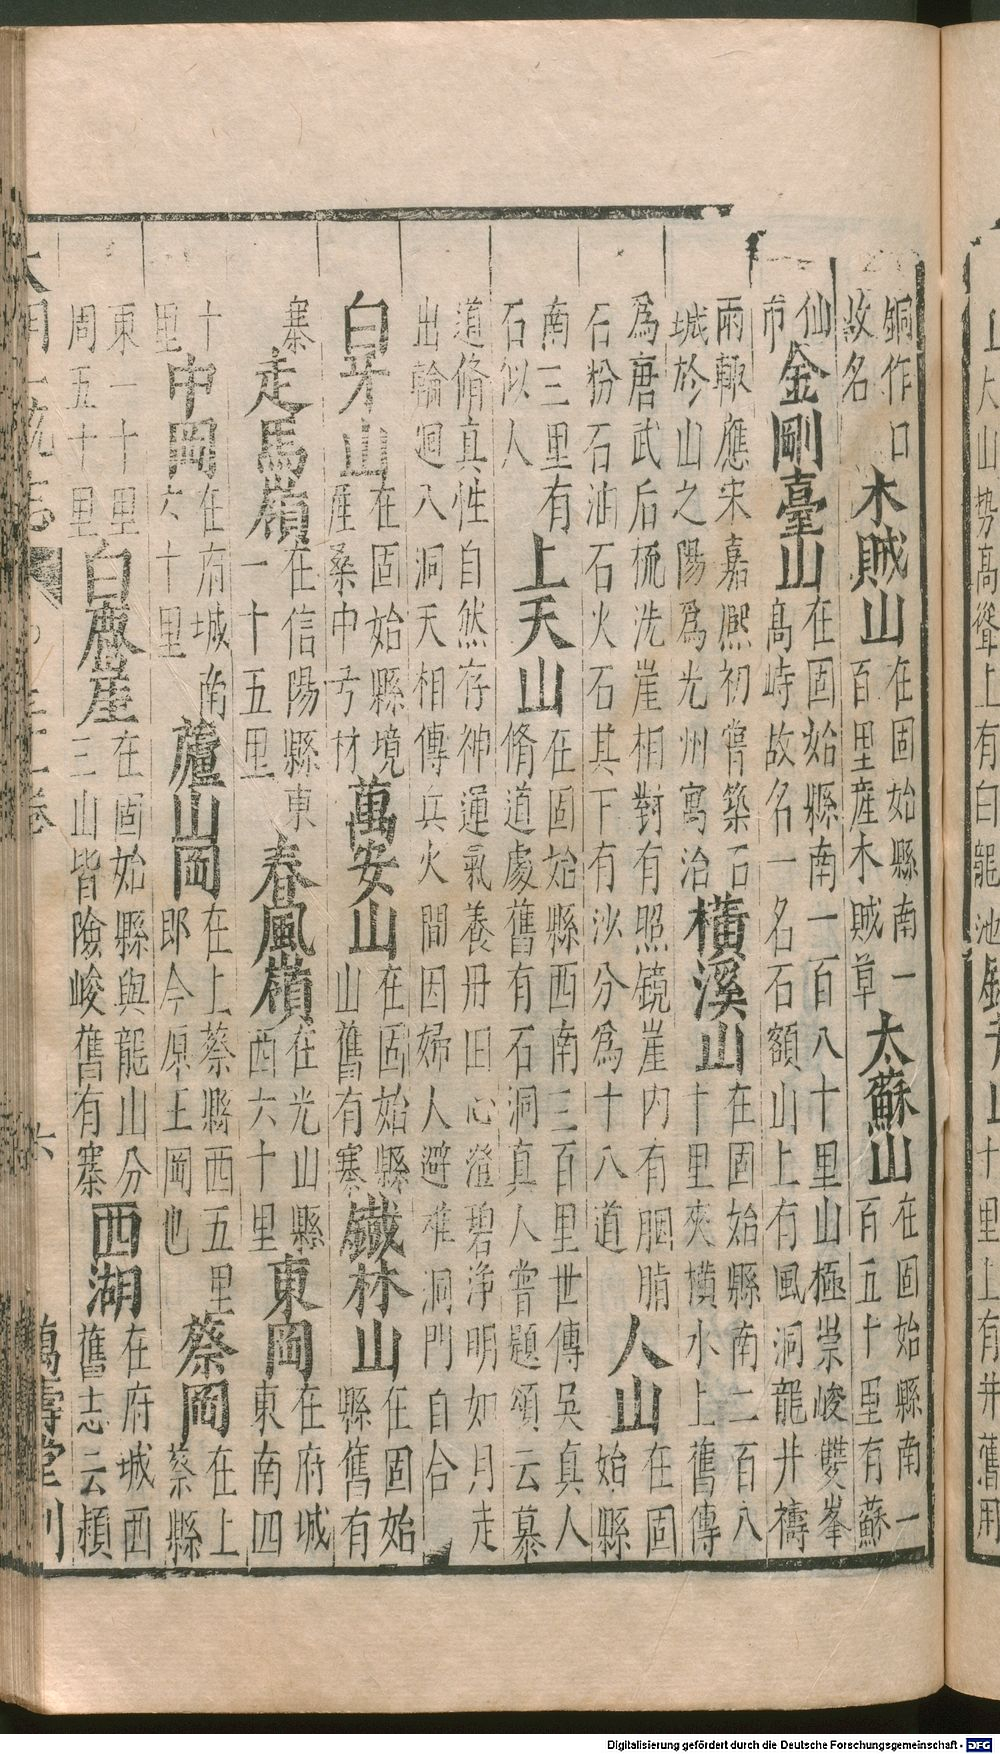 山大山勢高聳上有白龍池
十里上有井舊用
銅作口故名木賊山在固始縣南一百里産木賊草太蘇山在固始縣南一百五十里有蘇
仙市金剛臺山在固始縣南一百八十里山極崇峻雙峯高峙故名一名石額山上有風洞龍井禱
雨輒應宋嘉熈初嘗築石城於山之陽爲光州寓治橫溪山在固始縣南二百八十里夾橫水上舊傳
爲唐武后梳洗崖相對有照鏡崖内有胭脂石粉石油石火石其下有沙分爲十八道人山在固始縣
南三里有石似人上天山在固始縣西南三百里世傳吳真人脩道處舊有石洞真人嘗題頌云慕
道脩真性自然存神運氣養丹田心澄碧浄明如月走出輪廻八洞天相傳兵火間因婦人避难洞門自合
白牙山在固始縣境崖桑中亐材萬安山在固始縣山舊有寨鐵林山在固始縣舊有
寨走馬嶺在信陽縣東一十五里春風嶺在光山縣西六十里東岡在府城東南四
十里中岡在府城南六十里蘆山岡在上蔡縣西五里即今原王岡也蔡岡在上蔡縣
東一十里周五十里白鹿崖在固始縣與龍山分三山皆險峻舊有寨西湖在府城西舊志云頴
大明一統志 卷 六 萬壽堂刊
Digitalisierung gefördert durch die Deutsche Forschungsgemeinschaft - DFG